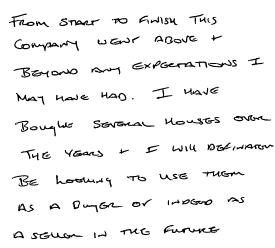 FROM START TO FINISH THIS
COMPANY WENT ABOVE +
BEYOND ANY EXPECTATIONS I
MAY HAVE HAD. I HAVE
BOUGHT SEVERAL HOUSES OVER
THE YEARS + I WILL DEFINATELY
BE LOOKING TO USE THEM
AS A BUYER OR INDEED AS
A SELLER IN THE FUTURE